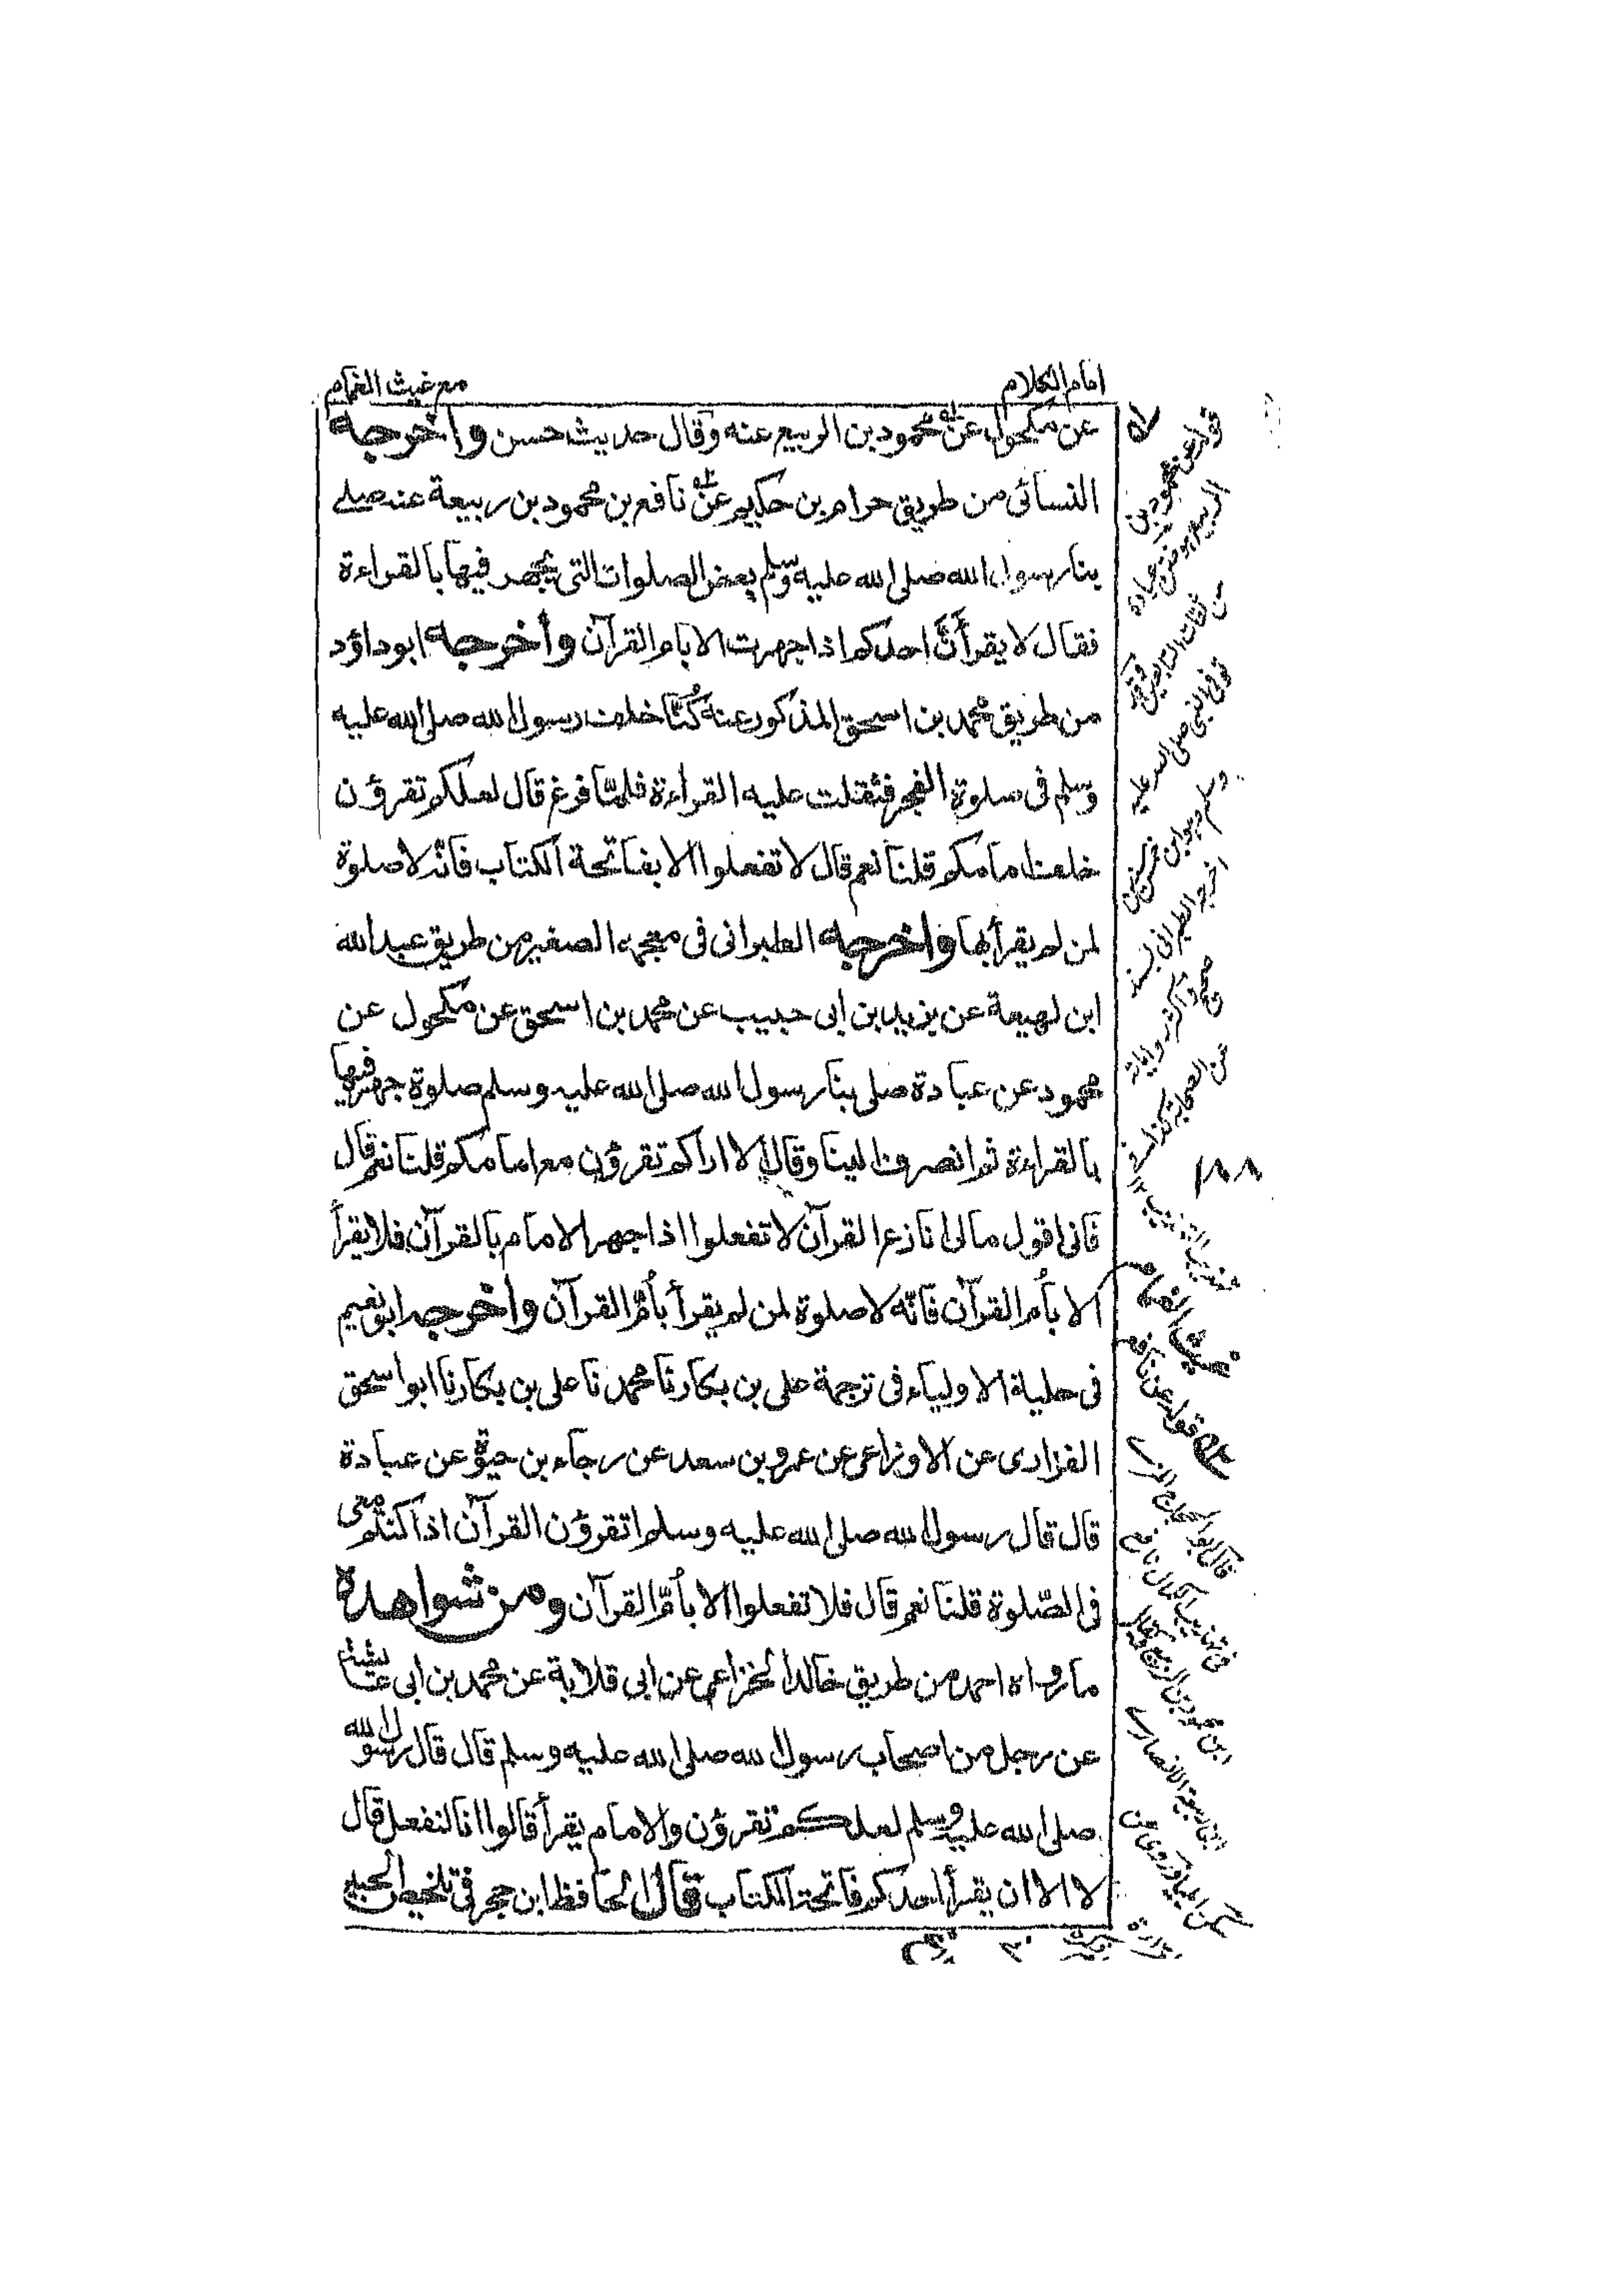 امام الكلام
مع غيث الغمام
عن مكحول عن محمود بن الربيع عنه وقال حديث حسن واخرجه
النسائى من طريق حرام بن حكيم عن نافع بن محمود بن ربيعة عنه صلے
بنا رسول الله صلى الله عليه وسلم بعض الصلوات التى يجهر فيها بالقراءة
فقال لا يقرأنّ احدكم اذا جهرت الا بام القرآن وأخرجه ابوداؤد
من طريق محمد بن اسحق المذكور عنه كُنّا خلف رسول الله صلى الله عليه
وسلم فى صلوة الفجر فثقلت عليه القراءة فلمّا فرغ قال لعلكم تقرؤن
خلف امامكم قلنا نعم قال لا تفعلوا الا بفاتحة الكتاب فانه لا صلوة
لمن لم يقرأ بها واخرجه الطبرانى فى معجمه الصغير من طريق عبد الله
ابن لهيعة عن يزيد بن ابى حبيب عن محمد بن اسحق عن مكحول عن
محمود عن عبادة صلى بنا رسول الله صلى الله عليه وسلم صلوة جهر فيها
بالقراءة ثم انصرف الينا وقال لا اراكم تقرؤن مع امامكم قلنا نعم قال
فانى اقول مالى انازع القرآن لا تفعلوا اذا جهر الامام بالقرآن فلا يقرأ
الا بأم القرآن فانّه لا صلوة لمن لم يقرأ بأمّ القرآن واخرجه ابو نعيم
فى حلية الاولياء فى ترجمة على بن بكار نا محمد نا على بن بكار نا ابو اسحق
الفزارى عن الاوزاعى عن عمرو بن سعد عن رجاء بن حيوة عن عبادة
قال قال رسول الله صلى الله عليه وسلم اتقرؤن القرآن اذا كنتم معى
فى الصّلوة قلنا نعم قال فلا تفعلوا الا بأمّ القرآن ومن شواهده
ما رواه احمد من طريق خالد الخزاعى عن ابى قلابة عن محمد بن ابى عائشة
عن رجل من اصحاب رسول الله صلى الله عليه وسلم قال قال رسول الله
صلى الله عليه وسلم لعلكم تقرؤن والامام يقرأ قالوا انا لنفعل قال
لا الا ان يقرأ احدكم فاتحة الكتاب قال الحافظ ابن حجر فى تلخيص الحبير
قوله عن محمود بن
الربيع هو ختن عبادة
من ثقات التابعين
توفى النبى صلى الله عليه
وسلم وهو ابن خمس سنين
اخرجه الطبرانى بسند
صحيح واكثر رواياته
عن الصحابة كذا فى
تهذيب التهذيب ١٢
١٨٨
غيث الغمام
قوله عن نافع
قال ابو الحجاج المزى
فى تهذيب الكمال نافع